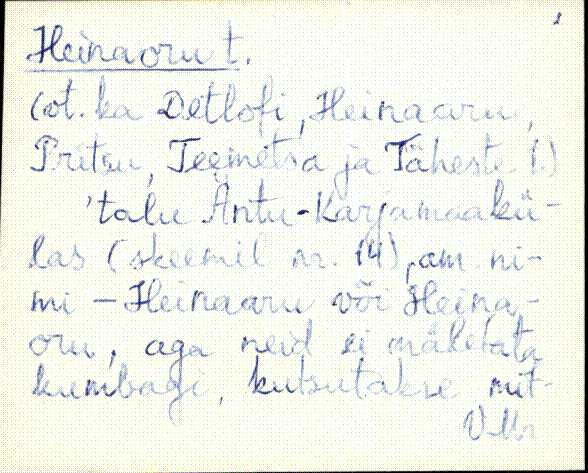 Heinaoru t.
(vt. ka Detlofi, Heinaaru,
Pritsu, Teemetsa ja Täheste t.)
'talu Äntu-Karjamaakü-
las (skeemil nr. 14), am. ni-
mi – Heinaaru või Heina-
oru, aga neid ei mäletata
kumbagi, kutsutakse mit-
VMr